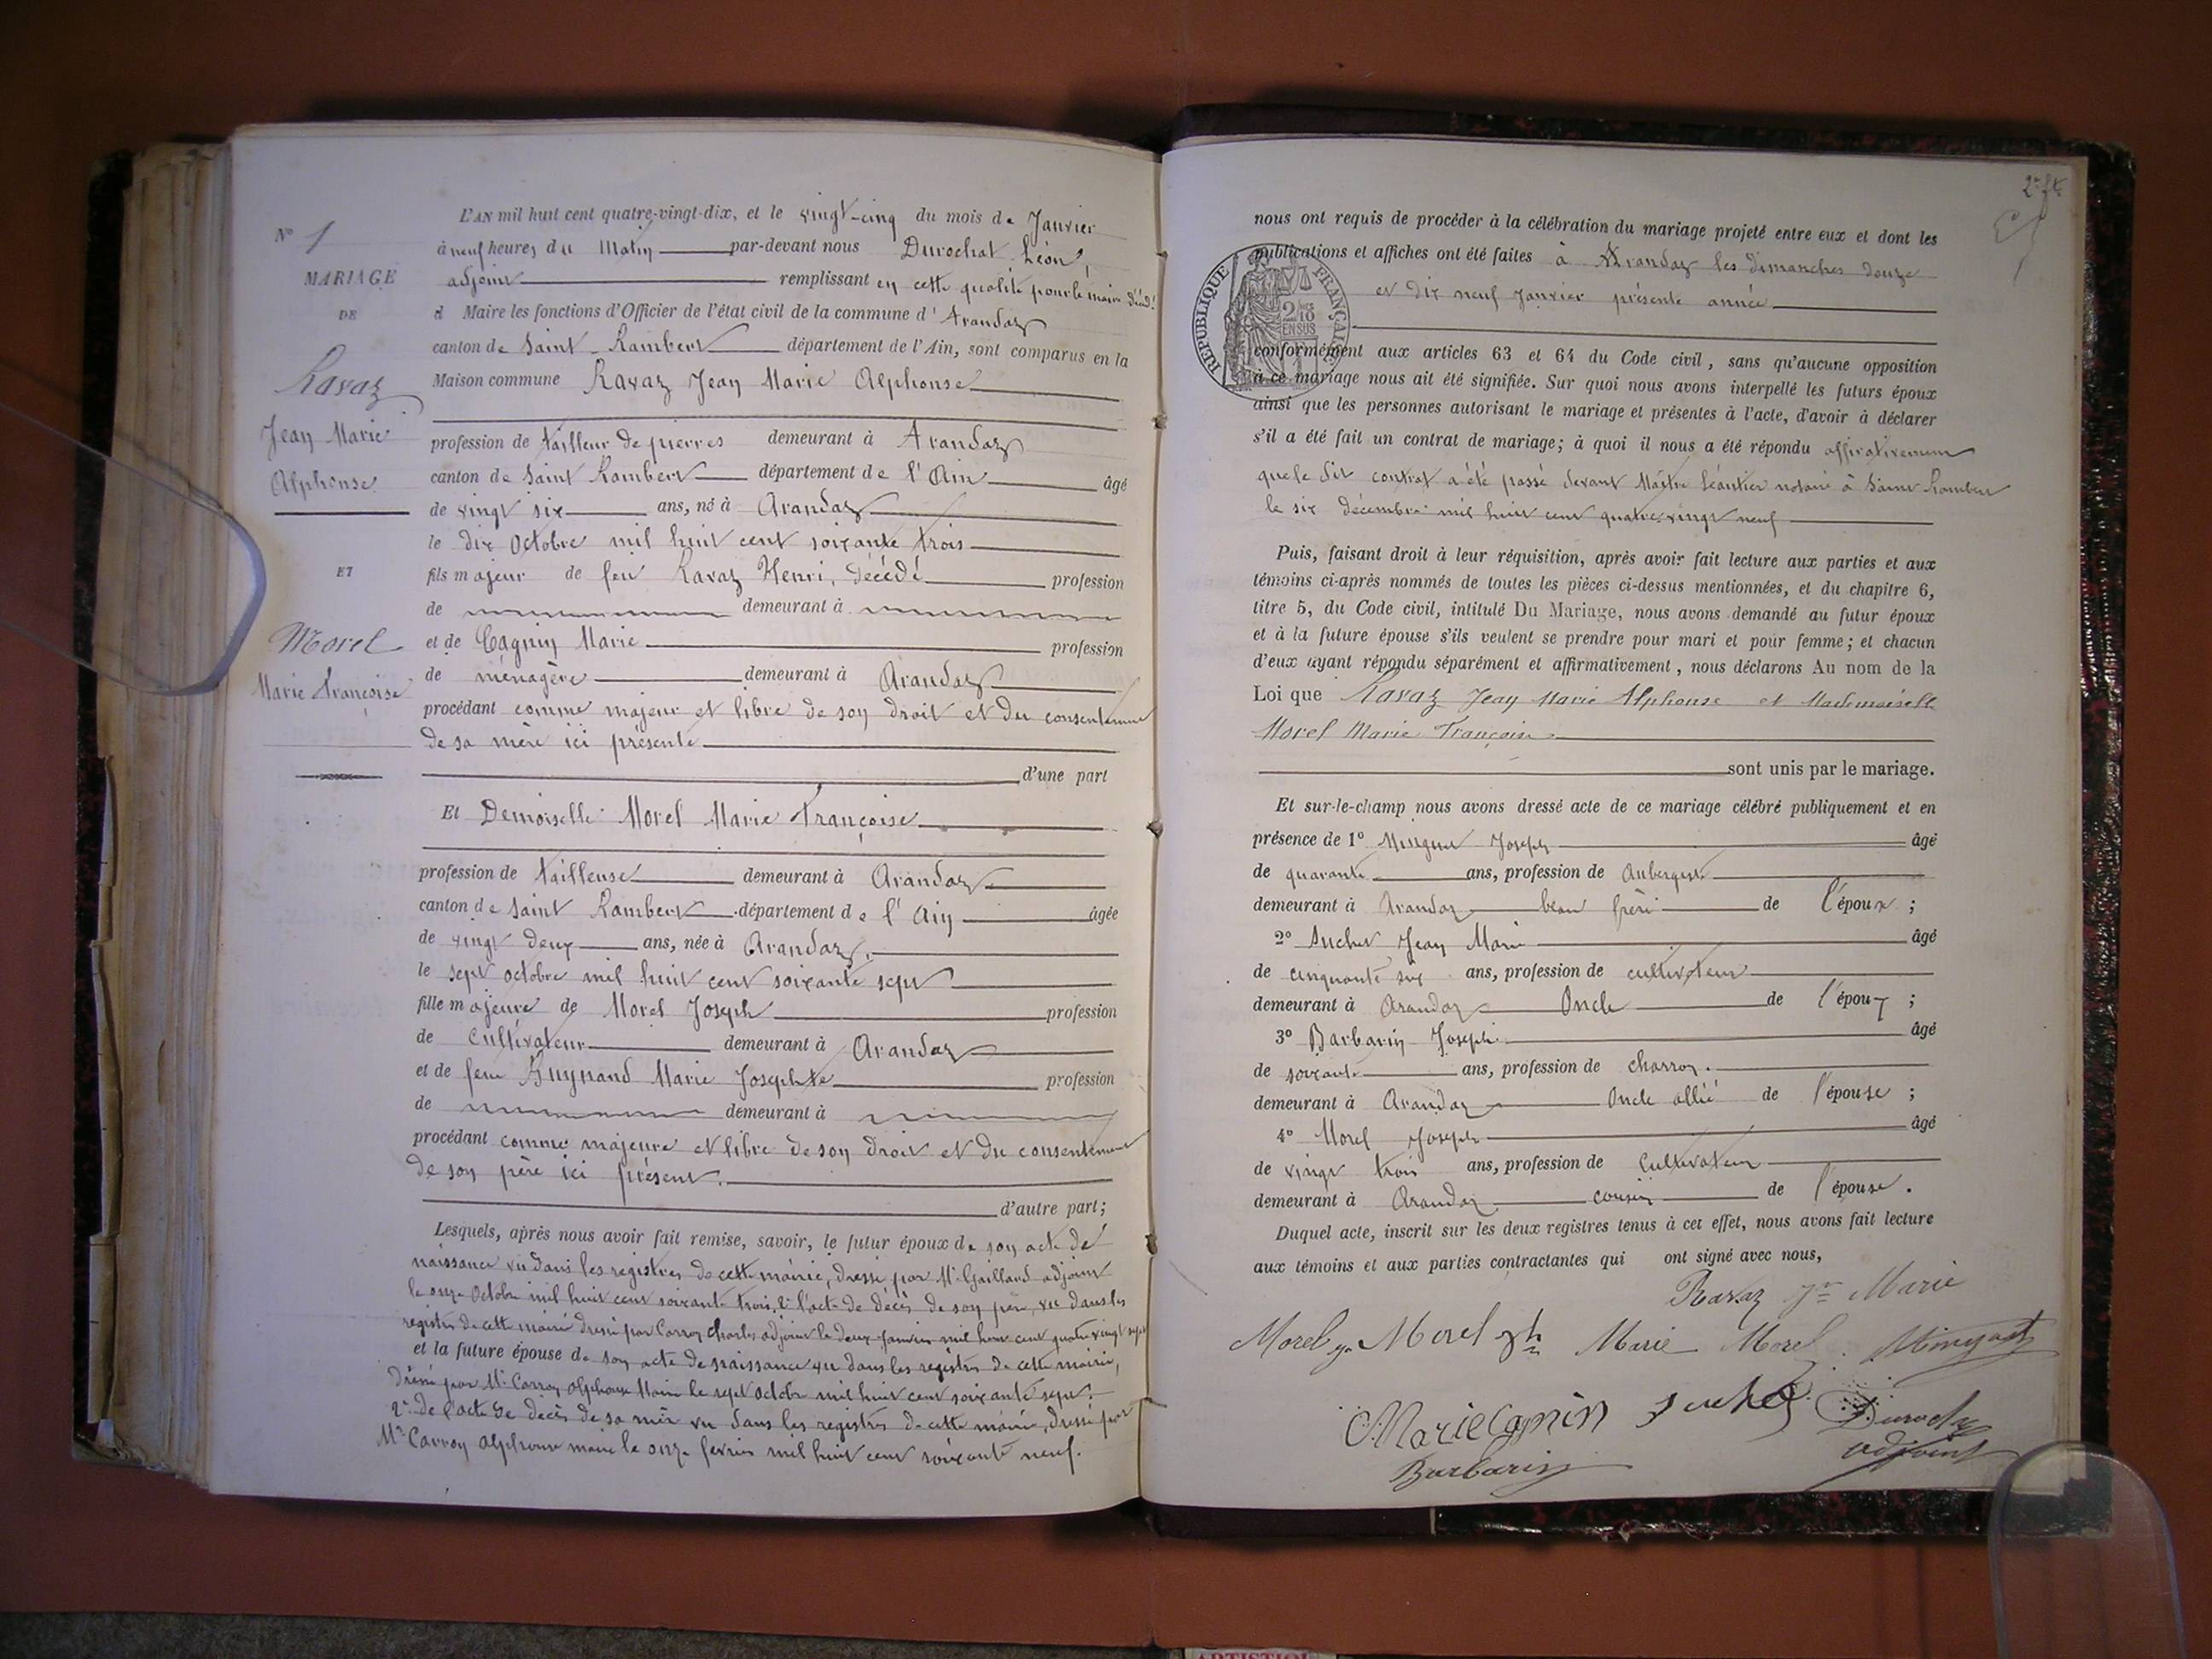 L'AN mil huit cent quatre-vingt-dix, et le vingt-cinq du mois de Janvier
à neuf heures du Matin par-devant nous Durochat Léon,
adjoint remplissant en cette qualité pour le maire décéd.
d Maire les fonctions d'Officier de l'état civil de la commune d'Arandaz
canton de Saint-Rambert département de l'Ain, sont comparus en la
Maison commune Ravaz Jean Marie Alphonse
profession de tailleur de pierres demeurant à Arandaz
canton de Saint Rambert département de l'Ain âgé
de vingt six ans, né à Arandaz
le dix Octobre mil huit cent soixante trois
fils majeur de feu Ravaz Henri, décédé profession
de demeurant à
et de Cagnin Marie profession
de ménagère demeurant à Arandaz
procédant comme majeur et libre de son droit et du consentement
de sa mère ici présente
d'une part
Et Demoiselle Morel Marie Françoise
profession de tailleuse demeurant à Arandaz
canton de Saint Rambert département de l'Ain âgée
de vingt deux ans, née à Arandaz
le sept octobre mil huit cent soixante sept
fille majeure de Morel Joseph profession
de Cultivateur demeurant à Arandaz
et de feue Guynand Marie Josephte profession
de demeurant à
procédant comme majeure et libre de son droit et du consentement
de son père ici présent.
d'autre part;
Lesquels, après nous avoir fait remise, savoir, le futur époux de son acte de
naissance vu dans les registres de cette mairie, dressé par Mr Gaillard adjoint
le onze Octobre mil huit cent soixante trois, 2° l'acte de décès de son père, vu dans les
registres de cette mairie dressé par Carron Charles adjoint le deux Janvier mil huit cent quatre vingt sept
et la future épouse de son acte de naissance vu dans les registres de cette mairie,
dressé par Mr Carron Alphonse Maire le sept Octobre mil huit cent soixante sept.
2° De l'acte de décès de sa mère vu dans les registres de cette mairie, dressé par
Mr Carron Alphonse maire le onze fevrier mil huit cent soixante neuf.
N° 1
MARIAGE
DE
Ravaz
Jean Marie
Alphonse
ET
Morel
Marie Françoise
2e ft.
nous ont requis de procéder à la célébration du mariage projeté entre eux et dont les
publications et affiches ont été faites à Arandaz les dimanches douze
et dix neuf Janvier présente année
RÉPUBLIQUE FRANÇAISE
2/10 EN SUS
conformément aux articles 63 et 64 du Code civil, sans qu'aucune opposition
à ce mariage nous ait été signifiée. Sur quoi nous avons interpellé les futurs époux
ainsi que les personnes autorisant le mariage et présentes à l'acte, d'avoir à déclarer
s'il a été fait un contrat de mariage; à quoi il nous a été répondu affirativement
que le dit contrat a été passé devant Maître Léautier notaire à Saint Rambert
le six décembre mil huit cent quatre-vingt neuf
Puis, faisant droit à leur réquisition, après avoir fait lecture aux parties et aux
témoins ci-après nommés de toutes les pièces ci-dessus mentionnées, et du chapitre 6,
titre 5, du Code civil, intitulé Du Mariage, nous avons demandé au futur époux
et à la future épouse s'ils veulent se prendre pour mari et pour femme; et chacun
d'eux ayant répondu séparément et affirmativement, nous déclarons Au nom de la
Loi que Ravaz Jean Marie Alphonse et Mademoiselle
Morel Marie Françoise
sont unis par le mariage.
Et sur-le-champ nous avons dressé acte de ce mariage célébré publiquement et en
présence de 1° Joseph âgé
de quarante ans, profession de Aubergiste
demeurant à Arandaz beau frère de l'époux;
2° Suchet Jean Marie âgé
de cinquante six ans, profession de cultivateur
demeurant à Arandaz Oncle de l'époux;
3° Barbarin Joseph âgé
de soixante ans, profession de charron.
demeurant à Arandaz Oncle allié de l'épouse;
4° Morel Joseph âgé
de vingt trois ans, profession de Cultivateur
demeurant à Arandaz cousin de l'épouse.
Duquel acte, inscrit sur les deux registres tenus à cet effet, nous avons fait lecture
aux témoins et aux parties contractantes qui ont signé avec nous,
Ravaz Jn Marie
Morel Morel Marie Morel
Marie Cagnin Suchet
Barbarin adjoint